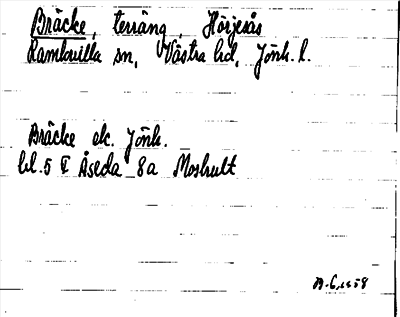 Bräcke, terräng, Hörjesås
Ramkvilla sn, Västra hd, Jönk. l.
Bräcke ek. Jönk.
bl. 5 Åseda 8a Moshult
1958